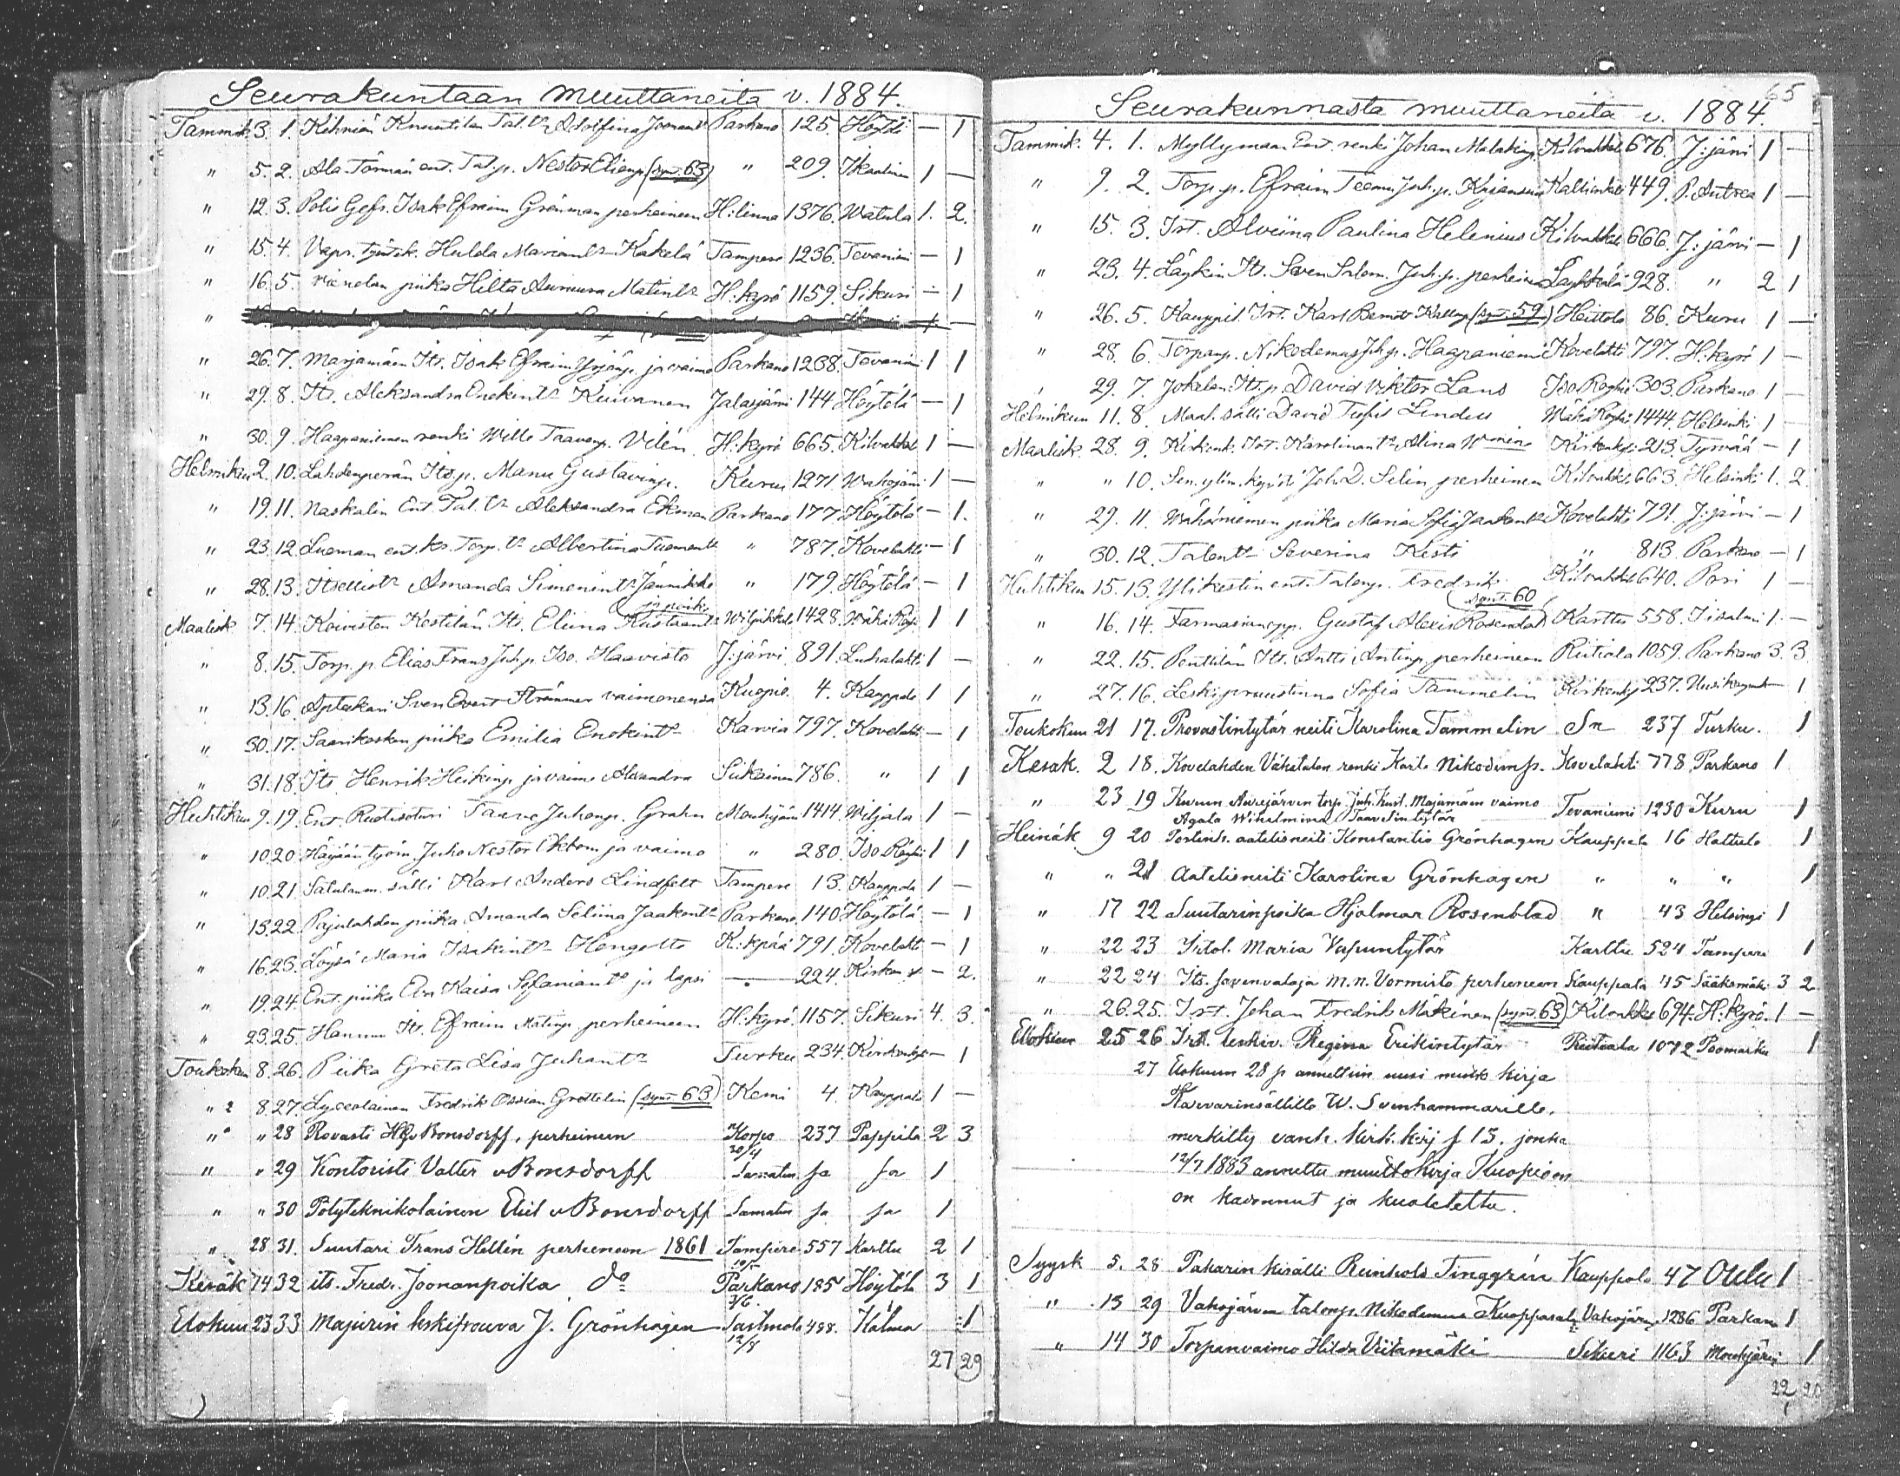 Seurakuntaan muuttaneita v. 1884.
Tammik. 3. 1. Kihniän Knuutilan Tal. tr Adolfina Joonantr Parkano 125. — 1
" 5. 2. Ala Törmän ent. Tal.p. Nestor Elianp. (synt. 63) " 209. Ikaalinen 1 —
" 12. 3. Polis Gefr. Isak Efraim Grönman perheineen H:linna 1376. Watula 1. 2.
" 15. 4. Hulda Kakelä Tampere 1236. Tevaniemi — 1
" 16. 5. piika Hilta Matintr H:kyrö 1159. Sikuri — 1
"
" 26. 7. Marjamäen Its. Isak Efraim Yrjönp. ja vaimo Parkano 1238. Tevaniemi 1 1
" 29. 8. Its. Aleksandra Enokintr Kuivanen Jalasjärvi 144 Höytölä — 1
" 30. 9. Haapaniemen renki Wille Taavenp. Vilén H:kyrö 665. Kilvakkal 1 —
Helmikuu 2. 10. Lahdenperän Its.p. Manu Gustavinp. Kuru 1271. Wahojärvi 1 —
" 19. 11. Naskalin Ent. Tal. tr Aleksandra Ekman Parkano 177. Höytölä — 1.
" 23. 12. Luoman ent. Torp. tr Albertina Tuomentr " 787. Kovelahti — 1
" 28. 13. Itsellistr Amanda Simenintr " 179. Höytölä — 1
ja poika
Maalisk 7. 14. Koiviston Kestilän Its. Eliina Kustaantr Wiljakkala 1428. Wähä Röyh. 1 1
" 8. 15. Torp. p. Elias Frans Juh.p. Iso Haavisto J:järvi 891. Luhalahti 1 —
" 13. 16. Aptekari Sven Evert Strömmer vaimonensa Kuopio. 4. Kauppala 1 1
" 30. 17. Saarikosken piika Emilia Enokintr Karvia 797. Kovelahti — 1
" 31. 18. Its Henrik Heikinp. ja vaimo Alexandra Siikainen 786. " 1 1
Huhtikuu 9. 19. Ent. Ruotisoturi Taave Juhonp. Grahn Mouhijärvi 1414. Wiljala 1 —
" 10. 20. työm. Juho Nestor Ekbom ja vaimo " 280. Iso Röyhiö 1 1
" 10. 21. Satulam. sälli Karl Anders Lindfelt Tampere 13. Kauppala 1 —
" 13. 22. Pajulahden piika Amanda Seliina Jaakontr Parkano 140. Höytölä — 1
" 16. 23. Löysä Maria Isakintr Hongotto K:kpää 791. Kovelahti — 1
" 19. 24. Ent. piika Eva Kaisa Stefaniantr ja lapsi — 224. Kirkonk. — 2.
" 23. 25. Its. Efraim Matinp. perheineen H:kyrö 1157. Sikuri 4. 3.
Toukokuu 8. 26. Piika Greta Lisa Juhantr Turku 234. Kirkonkyl. — 1
" 8. 27. Lyceolainen Fredrik Ossian Grotelin (synt. 63) Kemi 4. Kauppala 1 —
" " 28 Rovasti v Bonsdorff, perheineen Korpo 237 Pappila 2 3
20/4
" " 29 Kontoristi Valter v Bonsdorff Samatin Ja Ja 1
" " 30 Polyteknikolainen Eliel v Bonsdorff Samatin Ja Ja 1
" 28. 31. Suutari Frans Hellén perheineen 1861 Tampere 557 Karttu 2 1
Kesäk 14 32 its. Fredr. Joonanpoika do Parkano 185 Höytölä 3 1
3/6.
Elokuu 23 33 Majurin leskifrouva J. Grönhagen 488. Kälma 1
12/8
27 29

65
Seurakunnasta muuttaneita v. 1884.
Tammik. 4. 1. Myllymaan Ent. renki Johan Malakinp. Kilvakkal 676. J:järvi 1 —
" 9. 2. Torp.p. Efraim Teem. Juh.p. Kallionkieli 449. P. Antrea 1 —
" 15. 3. Irt. Alviina Paulina Helenius Kilvakkal 666. J:järvi — 1
" 23. 4. Läykin Its. Sven Salom. Juh.p. perheineen Läykkälä 928. " 2 1
" 26. 5. Kauppil Irt. Karl Bernt Kallenp. (synt. 59) Heittola 86. Kuru 1 —
" 28. 6. Torparip. Nikodemus Juh.p. Haapaniemi Kovelahti 797. H:kyrö 1 —
" 29. 7. Jokelan Its.p. David Viktor Lans Iso Röyhiö 303. Parkano 1 —
Helmikuu 11. 8. Maal. sälli David Teofil Lindell Wähä Röyhi 1444. Helsinki 1 —
Maalisk. 28. 9. Kirkonk. Irt. Karolinantr Alina Kirkonkyl. 213. Tyrvää — 1
" " 10. Joh. D. Selin perheineen Kilvakkal 663. Helsinki 1. 2.
" 29. 11. Wähäniemen piika Maria Sofia Jaakontr Kovelahti 791. J:järvi — 1
" 30. 12. Talontr Severina Kesti " 813. Parkano — 1
Huhtikuu 15. 13. Ylikestin ent. Talonp. Fredrik Kilvakkal 640. Pori 1 —
synt. 60
" 16. 14. Farmasianopp. Gustaf Alexis Rosendal Karttu 558. Iisalmi 1. —
" 22. 15. Penttilän Its. Antti Antinp. perheineen Riitiala 1059. Parkano 3. 3.
" 27. 16. Leskipruustinna Sofia Tammelin Kirkonkyl 237. Uusikaupunki — 1
Toukokuu 21 17. Provastintytär neiti Karolina Tammelin Sn 237 Turku. 1
Kesäk. 2 18. Kovelahden Vähätalon renki Karlo Nikodimp. Kovelahti 778 Parkano 1
" 23 19 Kurun Aurejärven torp. Juh. Kust. Majamäen vaimo Tevaniemi 1230 Kuru 1
Agata Wilhelmina Taavetintytär
Heinäk 9 20 aatelisneiti Konstantia Grönhagen Kauppala 16 Hattula 1
" " 21 Aatelisneiti Karolina Grönhagen " " " 1
" 17 22 Suutarinpoika Hjalmar Rosenblad " 43 Helsingi 1
" 22 23 Itsl. Maria Vapuntytär Karttu 524 Tampere 1
" 22 24 Its. savenvalaja M. N. Vormisto perheineen Kauppala 45 Sääksmäki 3 2
" 26. 25. Irt. Johan Fredrik Mäkinen (synt. 63) Kilvakkal 694. H:kyrö. 1 —
Elokuu 25 26 Irt. leskiv. Regina Erikintytär Riitiala 1072 Poomarkku 1
27 Elokuun 28 p annettiin uusi muutto kirja
Karvarinsällille W. Svenhammarille,
merkitty vanh. kirk. kirj f 13. jonka
12/7 1883 annettu muuttokirja Kuopioon
on kadonnut ja kuoletettu.
Syysk 5. 28 Pakarin kisälli Reinhold Tinggrén Kauppala 47 Oulu 1
" 13 29 Vahojärven talonp. Nikodemus Kuoppasalo Vahojärvi 1286 Parkano 1
" 14 30 Torpanvaimo Hilda Viitamäki Sikuri 1163 Mouhijärvi 1
22 20